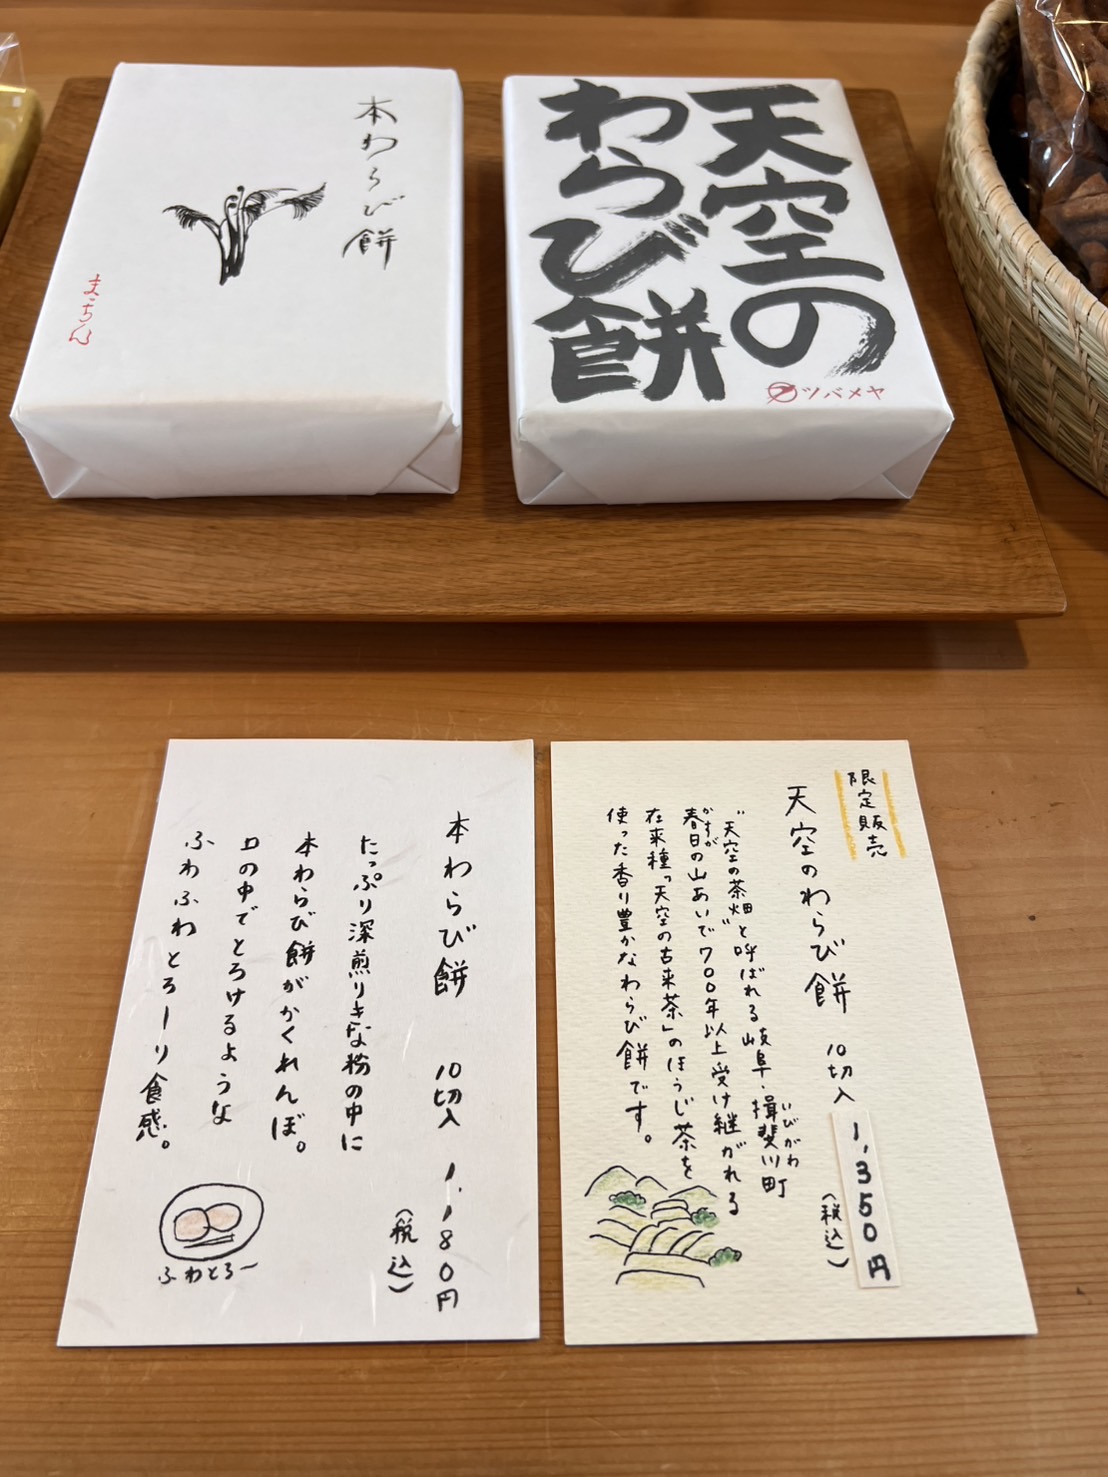 本わらび餅
まっちん
天空の
わらび餅
ツバメヤ
本わらび餅 10切入 1,180円
(税込)
たっぷり深煎りきな粉の中に
本わらび餅がかくれんぼ。
口の中でとろけるような
ふわふわとろーり食感。
ふわとろー
限定販売
天空のわらび餅 10切入 1,350円
(税込)
"天空の茶畑"と呼ばれる岐阜・揖斐川町
いびがわ
春日の山あいで700年以上受け継がれる
かすが
在来種「天空の古来茶」のほうじ茶を
使った香り豊かなわらび餅です。